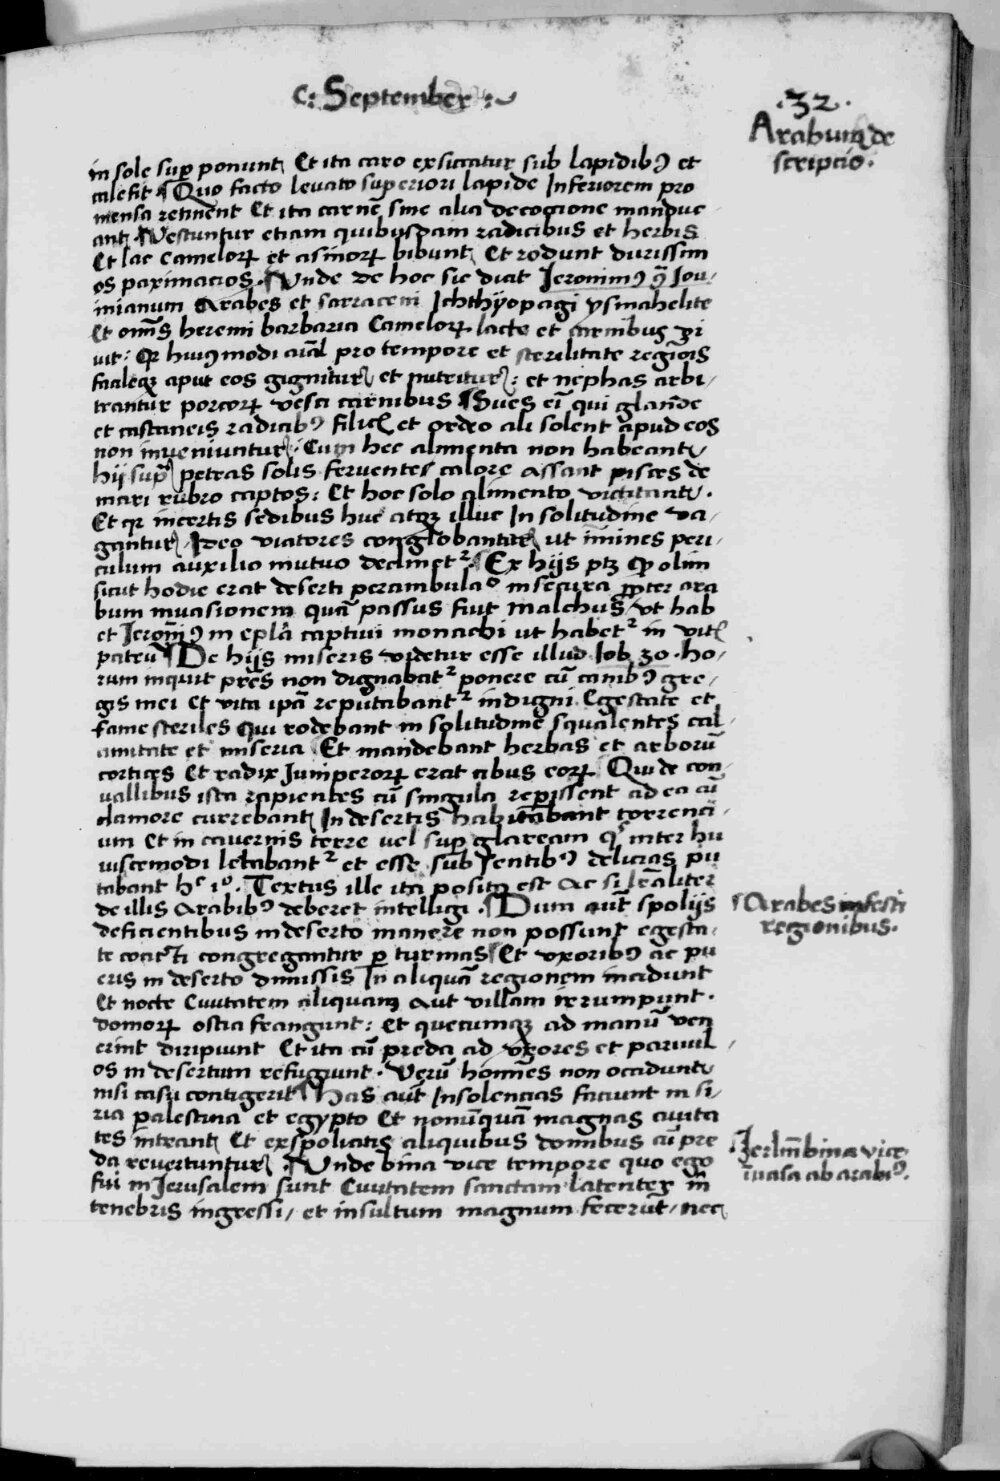 C: September :~
.32.
Arabum de
scripcio.
in sole sup ponunt Et ita caro exsiccatur sub lapidibꝰ et
calefit Quo facto levato superiori lapide Inferiorem pro
mensa retinent Et ita carnē sine alia decoctione mandue
ant Vescuntur etiam quibusdam radicibus et herbis
Et lac Camelorꝝ et asinorꝝ bibunt Et rodunt durissim
os paximacios. Unde de hoc sic dicit Jeronimꝰ ꝯ Jou/
inianum Arabes et sarraceni Ichthyopagi ysmahelite
Et omīs heremi barbaria Camelorꝝ lacte et carnibus vi
vit: Qꝛ huiꝰmodi aīal pro tempore et sterilitate regiōis
facileqꝫ aput eos gignitur et nutritur: et nephas arbi/
trantur porcorꝝ vesci carnibus Sues eī qui glande
et castaneis radicibꝰ filicꝭ et ordeo ali solent apud eos
non inveniuntur. Cum hec alimenta non habeant
hij supra petras solis ferventes calore assant pisces de
mari rubro captos: Et hoc solo alimento victitant.
Et qꝛ incertis sedibus huc atqꝫ illuc In solitudine va/
gantur. Ideo viatores conglobantur ut īmines peri/
culum auxilio mutuo declinet². Ex hijs ptꝫ ꝙ olim
sicut hodie erat deserti perambulaᵒ insecura ꝓpter ara
bum invasionem quā passus fuit malchus, ut hab
et Jeronīꝰ in epla captivi monachi ut habet² in vitꝭ
patrū De hijs miseris videtur esse illud Iob 30. ho/
rum inquit pres non dignabat² ponere cū canibꝰ gre/
gis mei Et vita ipā reputabant² indigni Egestate et
fame steriles Qui rodebant in solitudine squalentes cal/
amitate et miseria Et mandebant herbas et arborū
cortices Et radix Juniperorꝝ erat cibus eorꝝ Qui de con/
vallibus ista rapientes cū singula reperissent ad ea cū
clamore currebant In desertis habitabant torrenci/
um Et in cavernis terre vel sup glaream qⁱ inter hu
iuscemodi letabant² et esse sub sentibꝰ delicias pu
tabant hᶜ iᵒ. Textus ille ita positꝰ est Ac si lrāliter
de illis Arabibꝰ deberet intelligi. Dum aūt spolijs
deficientibus in deserto manere non possunt egesta/
te coacti congregantur p turmas Et uxoribꝰ ac pu
eris in deserto dimissis In aliquā regionem incidunt
Et nocte Civitatem aliquam aut villam irrumpunt.
domorꝝ ostia frangunt: Et quecumqꝫ ad manū ven
erint diripiunt Et ita cū preda ad uxores et parvul/
os in desertum refugiunt. Verū homīes non occidunt
nisi casu contigerit Has aūt Insolencias faciunt in si/
ria palestina et egypto Et nonūquā magnas civita
tes intrant Et exspoliatis aliquibus domibus cū pre
da revertuntur. Unde bina vice tempore quo ego
fui in Jerusalem sunt Civitatem sanctam latenter in
tenebris ingressi, et insultum magnum fecerūt, nec
Arabes infesti
regionibus.
Jerlm̄ bina vice
īvasa ab arabiꝰ.